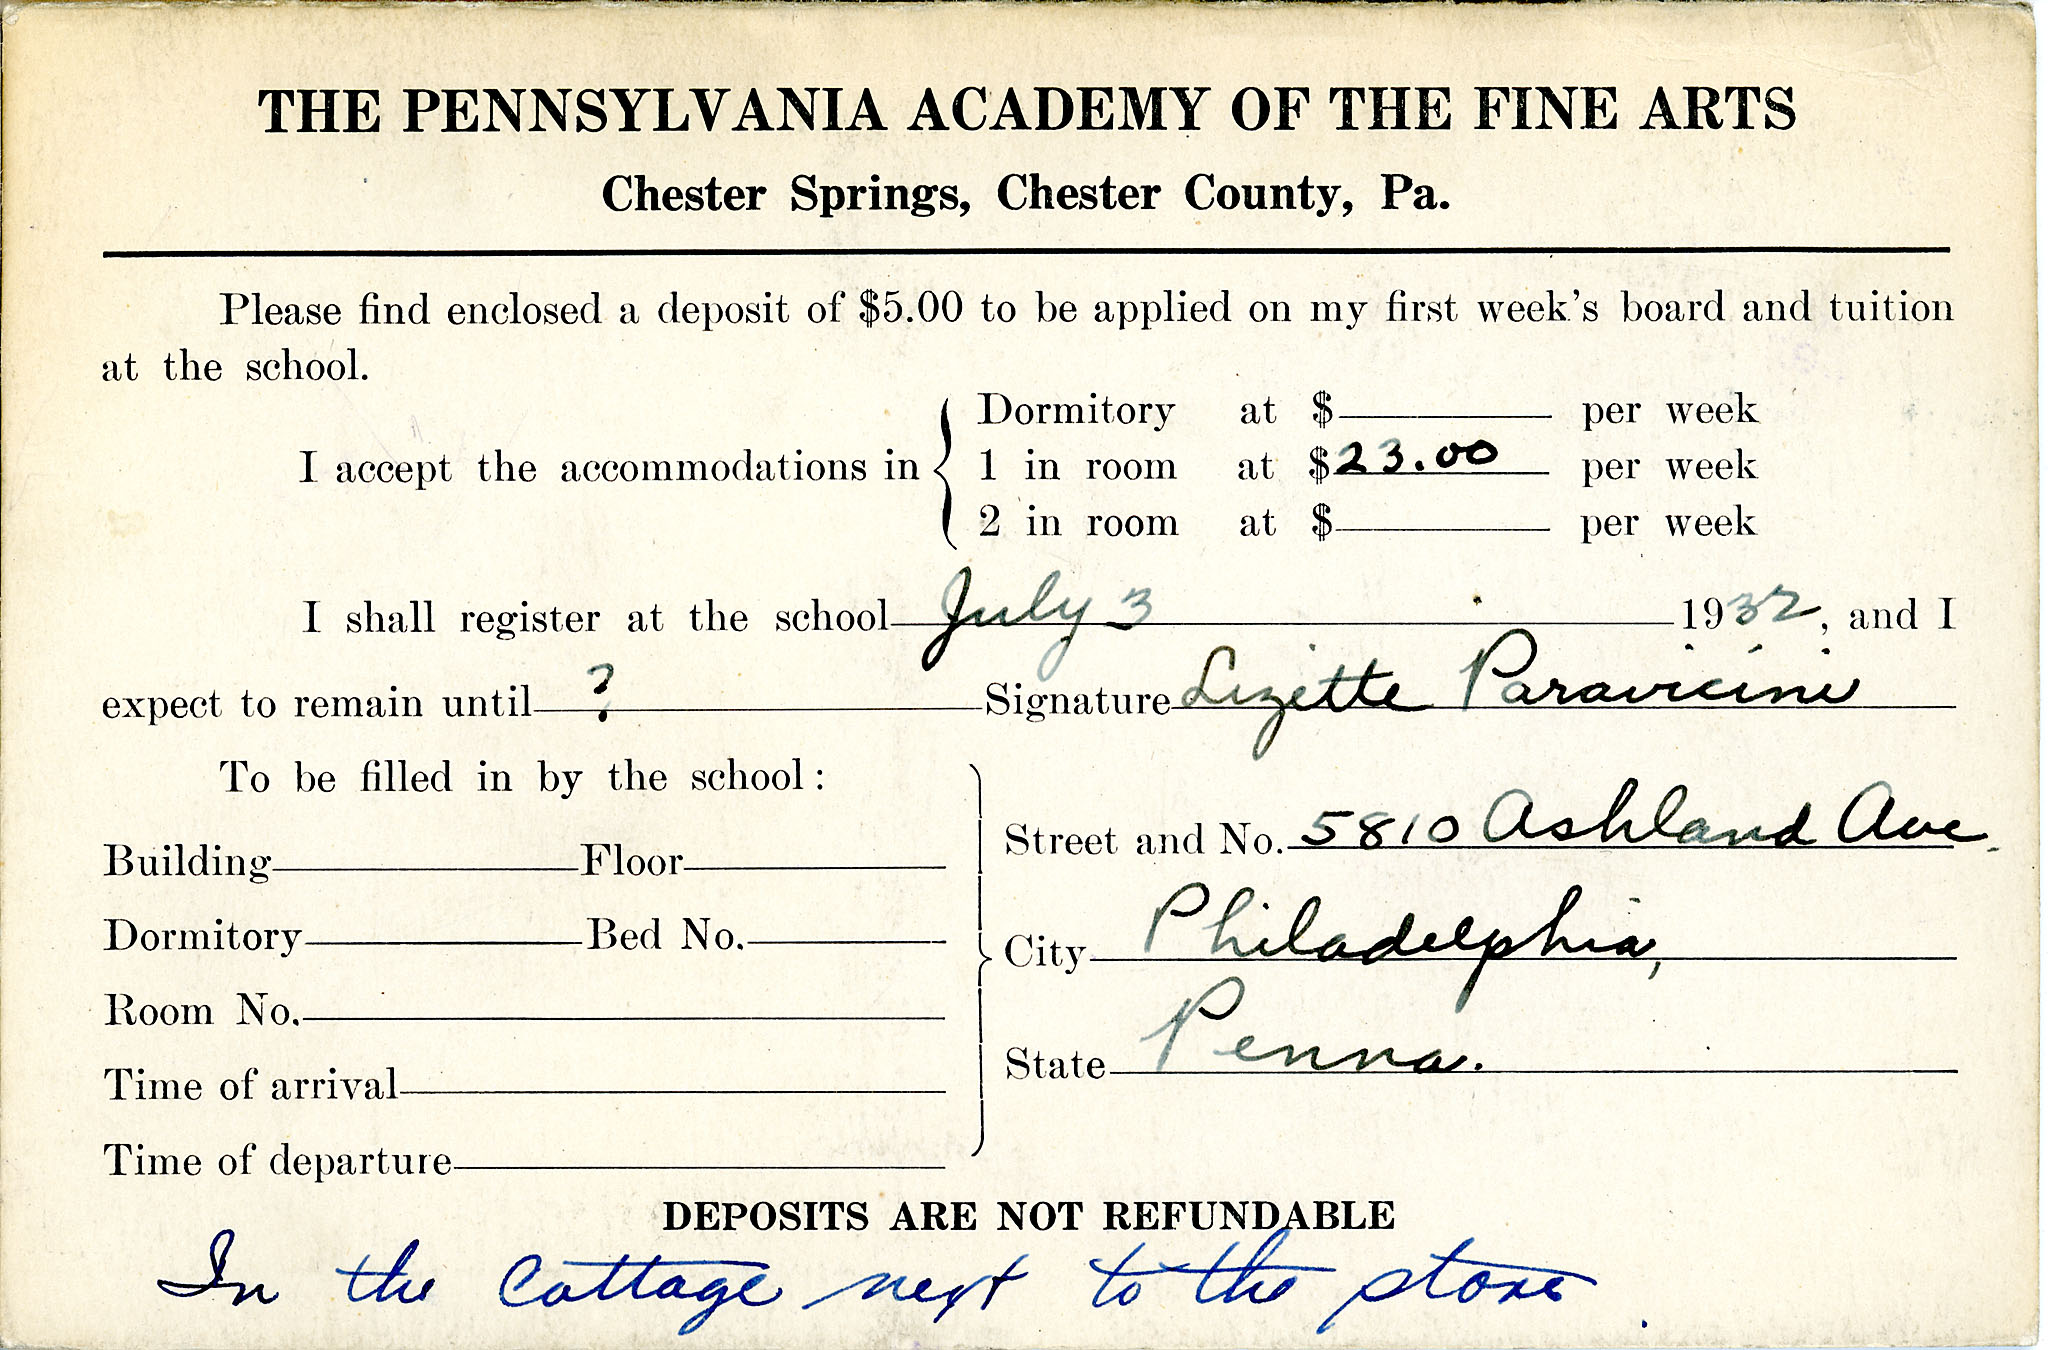 THE PENNSYLVANIA ACADEMY OF THE FINE ARTS
Chester Springs, Chester County, Pa.
Please find enclosed a deposit of $5.00 to be applied on my first week's board and tuition
at the school.
Dormitory at $ per week
I accept the accommodations in { 1 in room at $23.00 per week
2 in room at $ per week
I shall register at the school July 3 1932, and I
expect to remain until ? Signature Lizette Paravicini
To be filled in by the school:
Building Floor
Dormitory Bed No.
Room No.
Time of arrival
Time of departure
Street and No. 5810 Ashland Ave.
City Philadelphia,
State Penna.
DEPOSITS ARE NOT REFUNDABLE
In the Cottage next to the store.